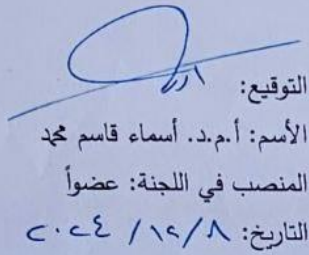 التوقيع:
الأسم: أ.م.د. أسماء قاسم محمد
المنصب في اللجنة: عضواً
التاريخ: ٨/ ١٢/ ٢٠٢٤